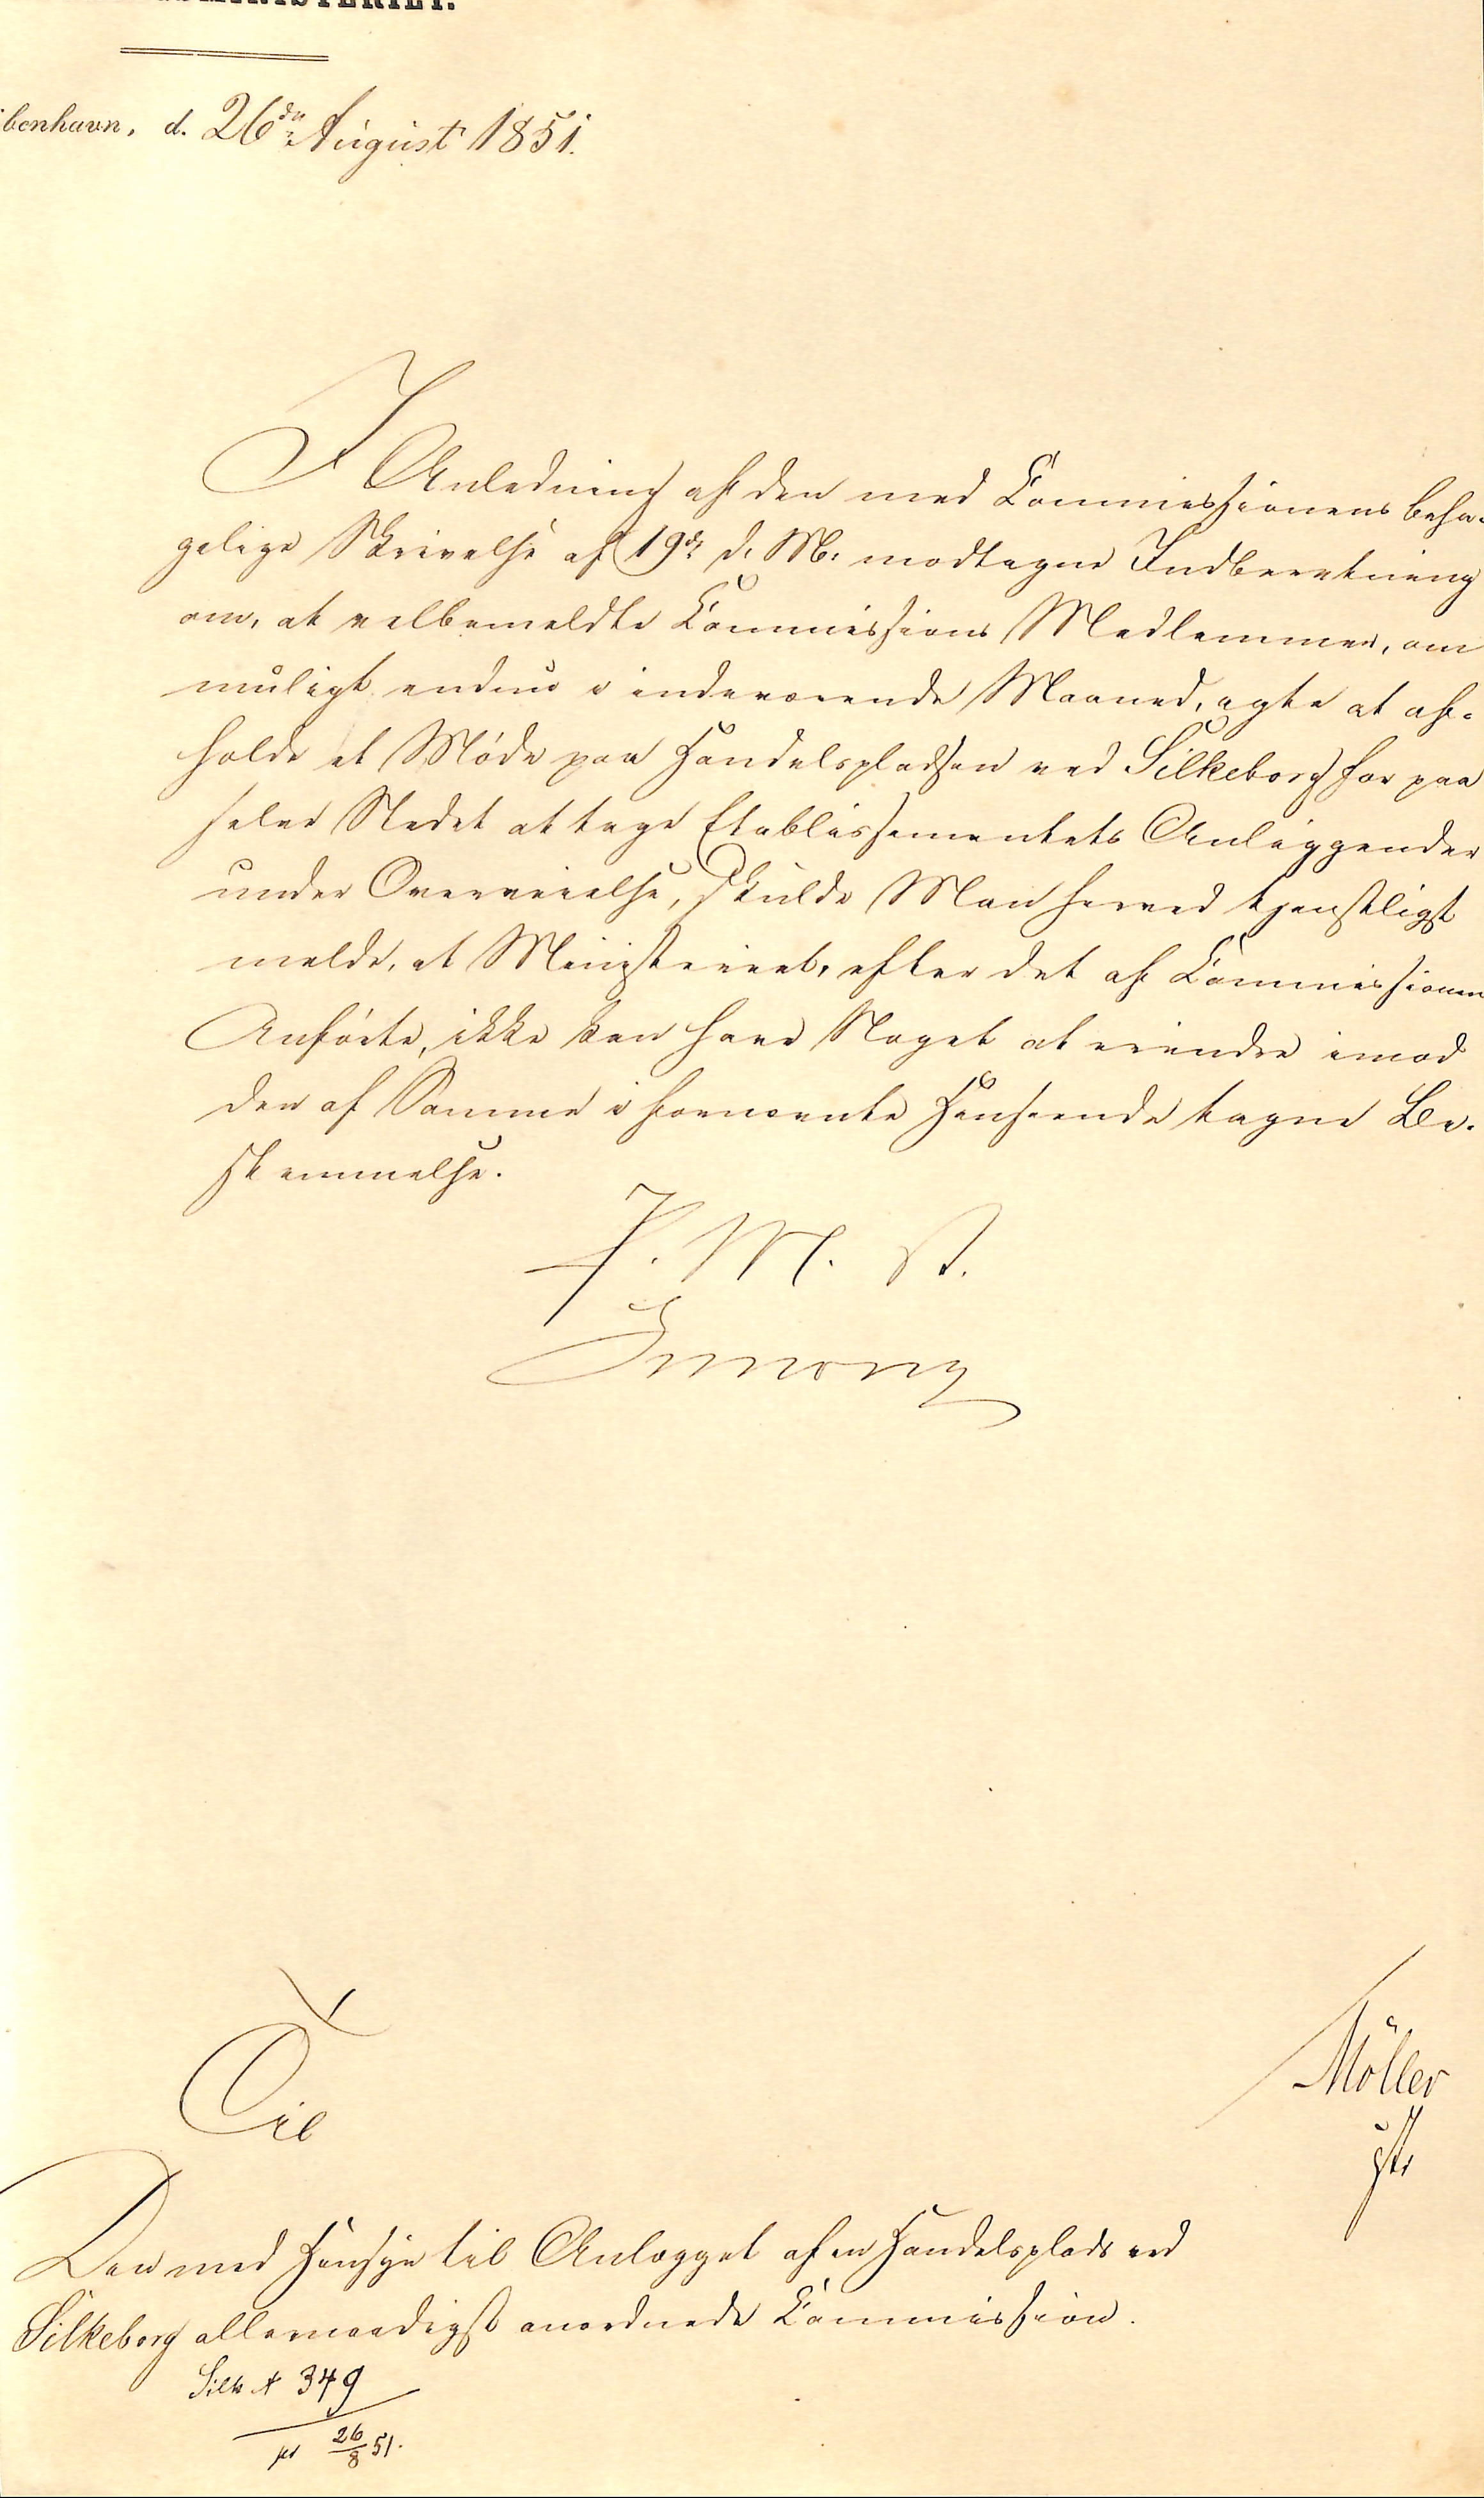 MINISTERIET.
benhavn, d. 26de August 1851.
I Anledning af den med Commissionens beha-
gelige Skrivelse af 19de d. M. modtagne Indberetning
om, at velbemeldte Commissions Medlemmer, om
muligt endnu i indeværende Maaned, agte at af-
holde et Møde paa Handelspladsen ved Silkeborg for paa
selve Stedet at tage Etablissementets Anliggender
under Overveielse, skulde Man herved tjenstligst
melde, at Ministeriet, efter det af Commissionen
Anførte, ikke kan have Noget at erindre imod
den af Samme i fornævnte Henseende tagne Be-
stemmelse.
F. M. St.
Simony
Til
Møller
Den med Hensyn til Anlægget af en Handelsplads ved
Silkeborg allernaadigst anordnede Commission.
Silk 349
26/8 51.